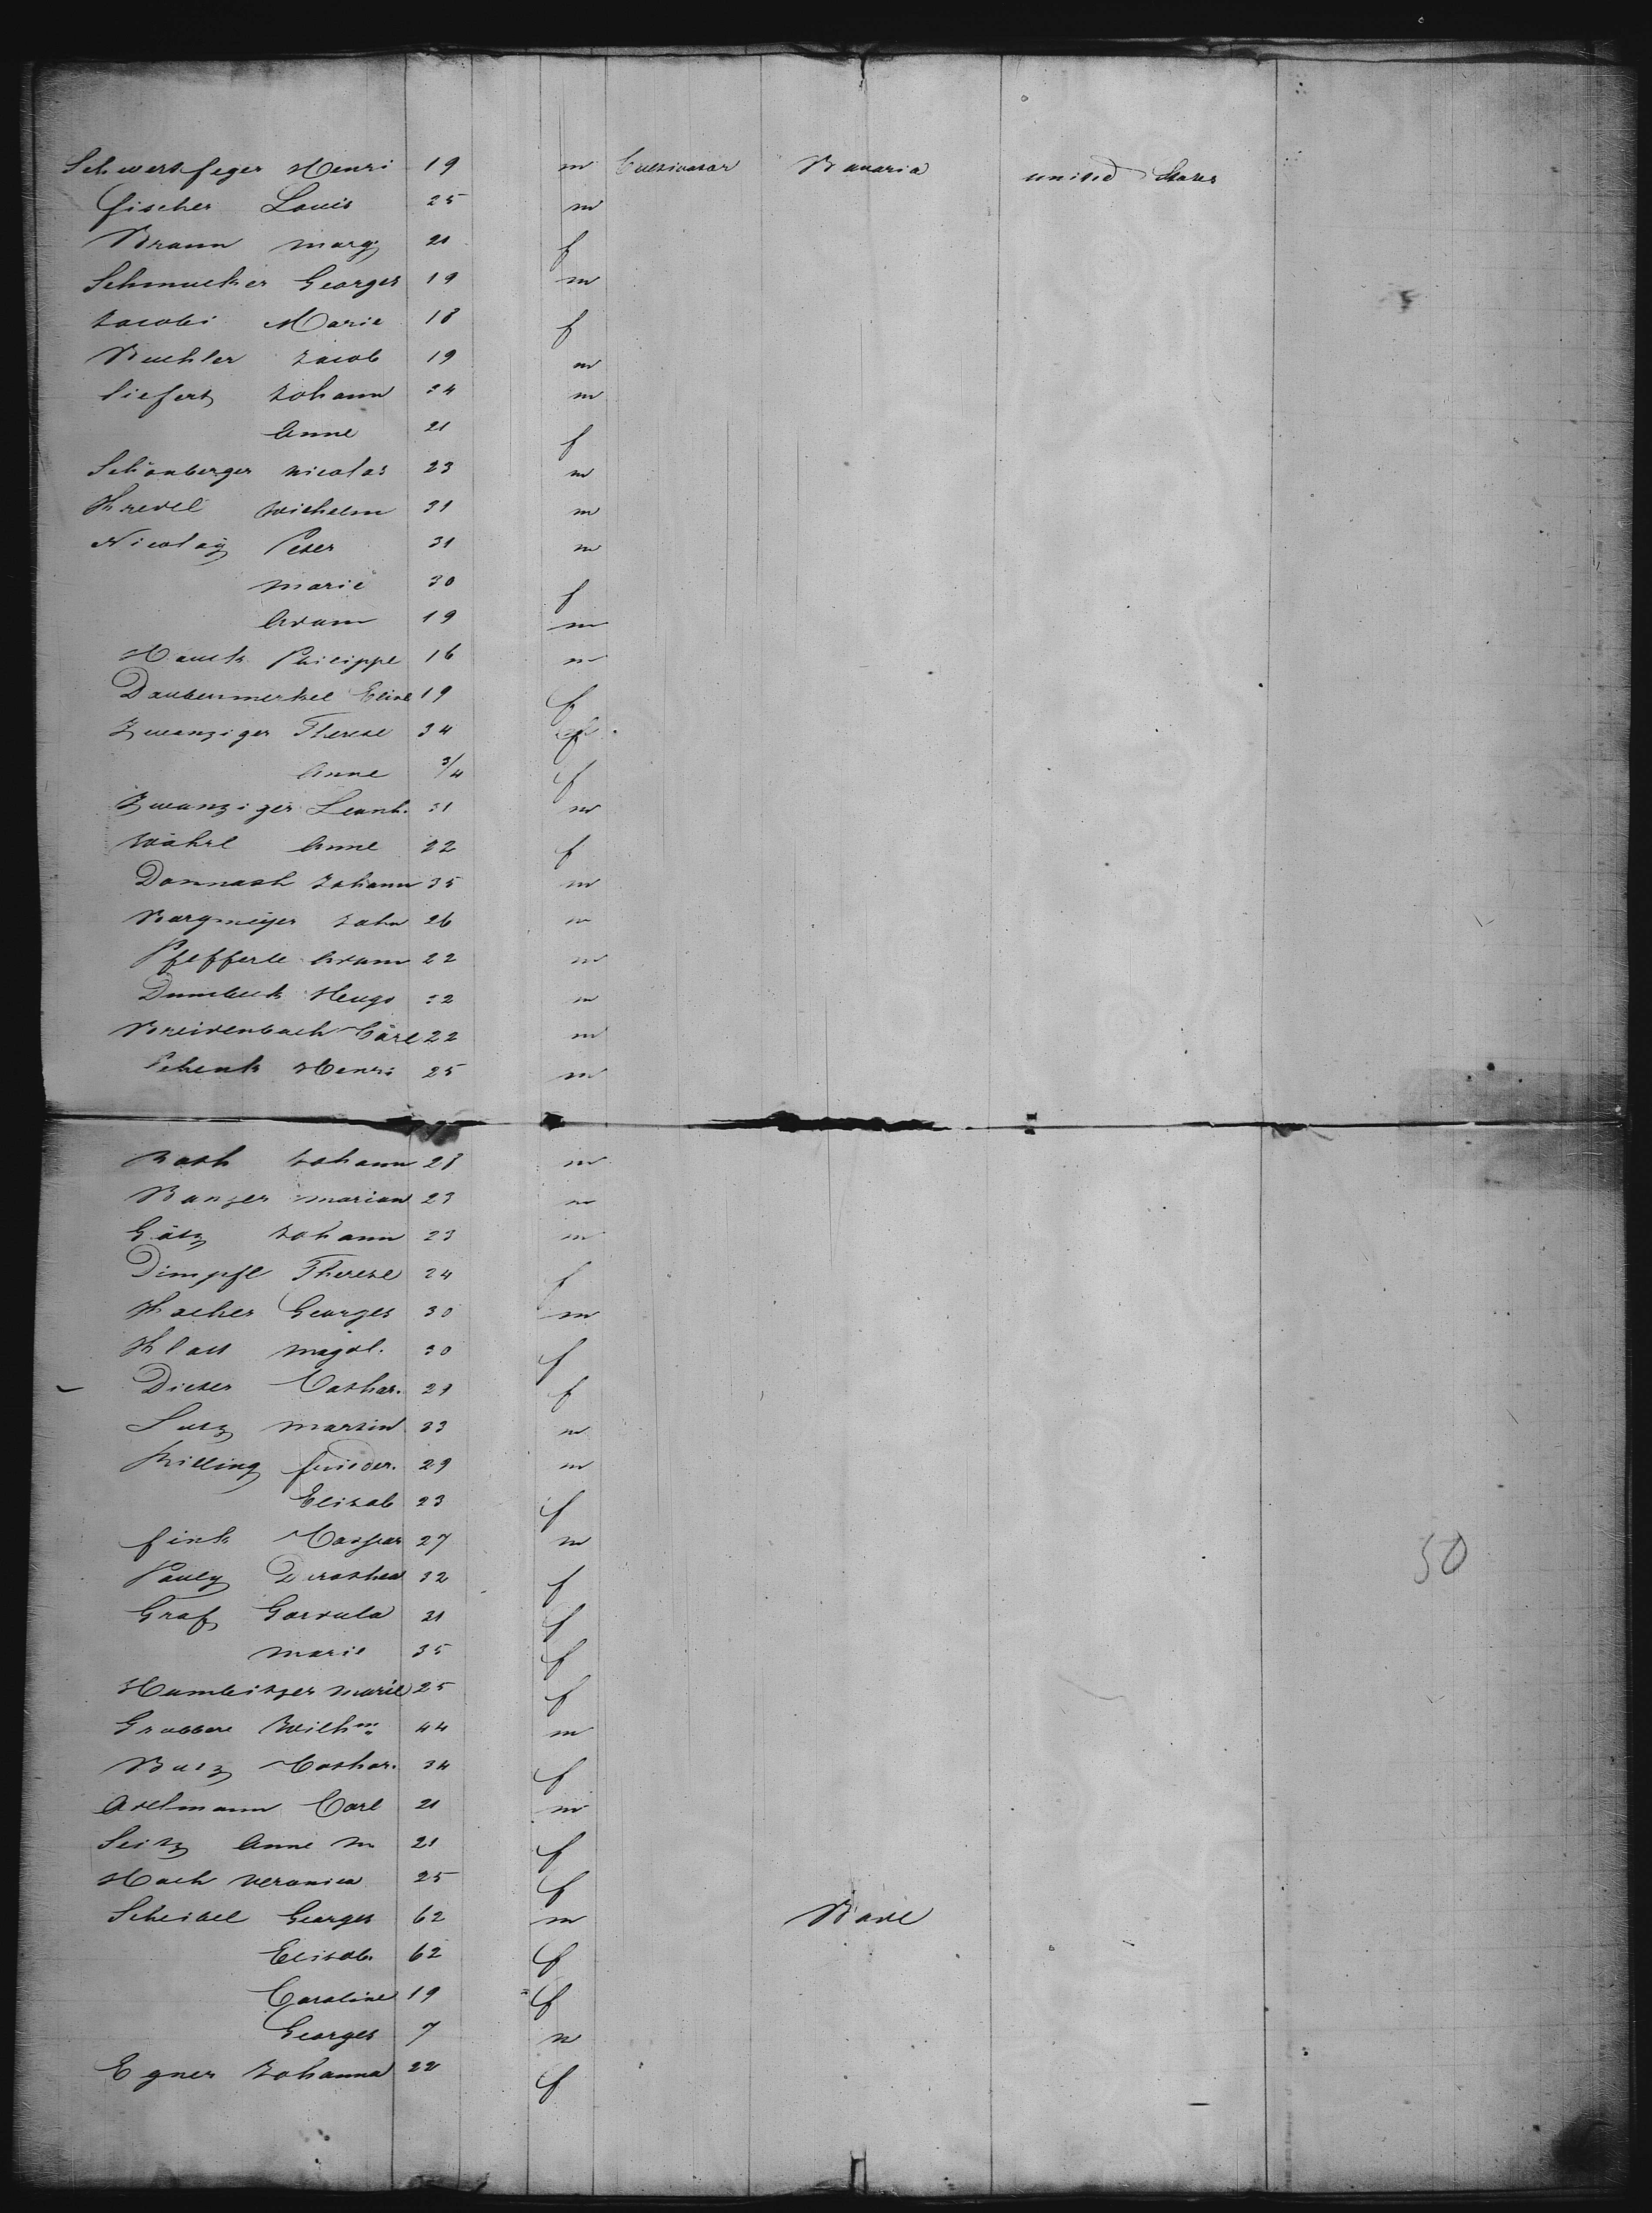 Schwertfeger Henri 19 m Cultivator Bavaria united States
fischer Louis 25 m
Braun marg 21 f
Schmucker Georges 19 m
Jacobi Marie 18 f
Buchler Jacob 19 m
Siefert Johann 24 m
Anne 21 f
Schönberger nicolas 23 m
Kredel Wilhelm 31 m
Nicolay Peter 31 m
marie 30 f
Adam 19 m
Hauck Philippe 16 m
Daubenmerkel Elise 19 f
Zwanziger Therese 34 f
Anne 3/4 f
Zwanziger Leonh. 31 m
Wöhrl Anne 22 f
Donnash Johann 35 m
Bergmeyer John 26 m
Pfefferle Adam 22 m
Dumbeck Hugo 22 m
Breidenbach Carl 22 m
Schenk Henri 25 m
Rath Johann 28 m
Banzer marian 23 m
Götz Johann 23 m
Dimpfl Therese 24 f
Kacher Georges 30 m
Klatt magdl. 30 f
Dieter Cathar. 29 f
Lutz martin 33 m
Killing frieder. 29 m
Elisab 23 f
fink Caspar 27 m
Pauly Dorothea 32 f
Graf Gordula 21 f
marie 35 f
Humbitzer marie 25 f
Grabber Wilhm 44 m
Butz Cathar. 34 f
Adelmann Carl 21 m
Seitz Anne m 21 f
Hoch veronica 25 f
Scheibel Georges 62 m Bade
Elisab. 62 f
Caroline 19 f
Georges 7 m
Egner Johanna 22 f
50